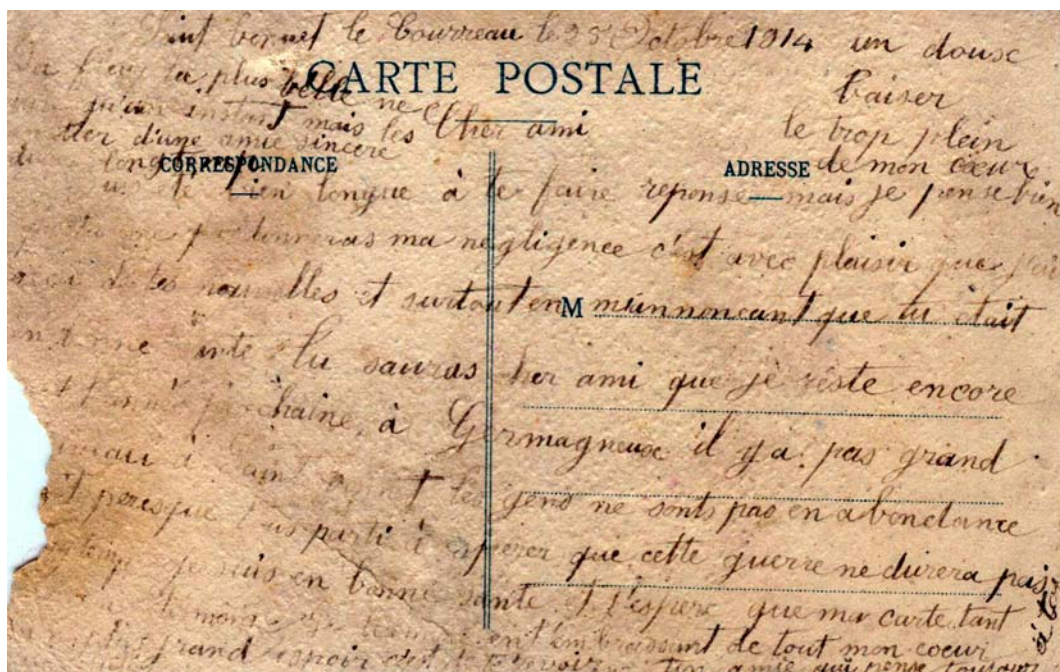 Saint bonnet le Courreau le 25 Octobre 1914
un doux
baiser
le trop plein
de mon cœur
CARTE POSTALE
fleur la plus belle ne
qu'un instant mais les
d'une amie sincère
longtemps
Cher ami
CORRESPONDANCE
ADRESSE
été bien longue à te faire reponse mais je pense bien
me pardonneras ma negligence c'est avec plaisir que j'ai
de tes nouvelles et surtout en m'annoncant que tu était
M
bonne sante tu sauras cher ami que je réste encore
l'année prochaine à Germagneux il y a pas grand
à Saint bonnet les gens ne sonts pas en abondance
presque tous parti à esperer que cette guerre ne durera pas
je suis en bonne sante et j'espere que ma carte tant
de même je termine en t'embrassant de tout mon coeur
grand espoir est de te revoir ton amie qui pense toujours
à toi